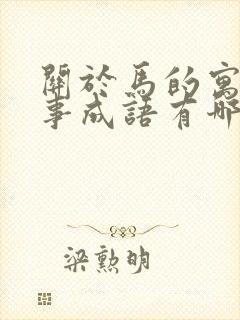 關於馬的寓
事成語有哪
梁勲明